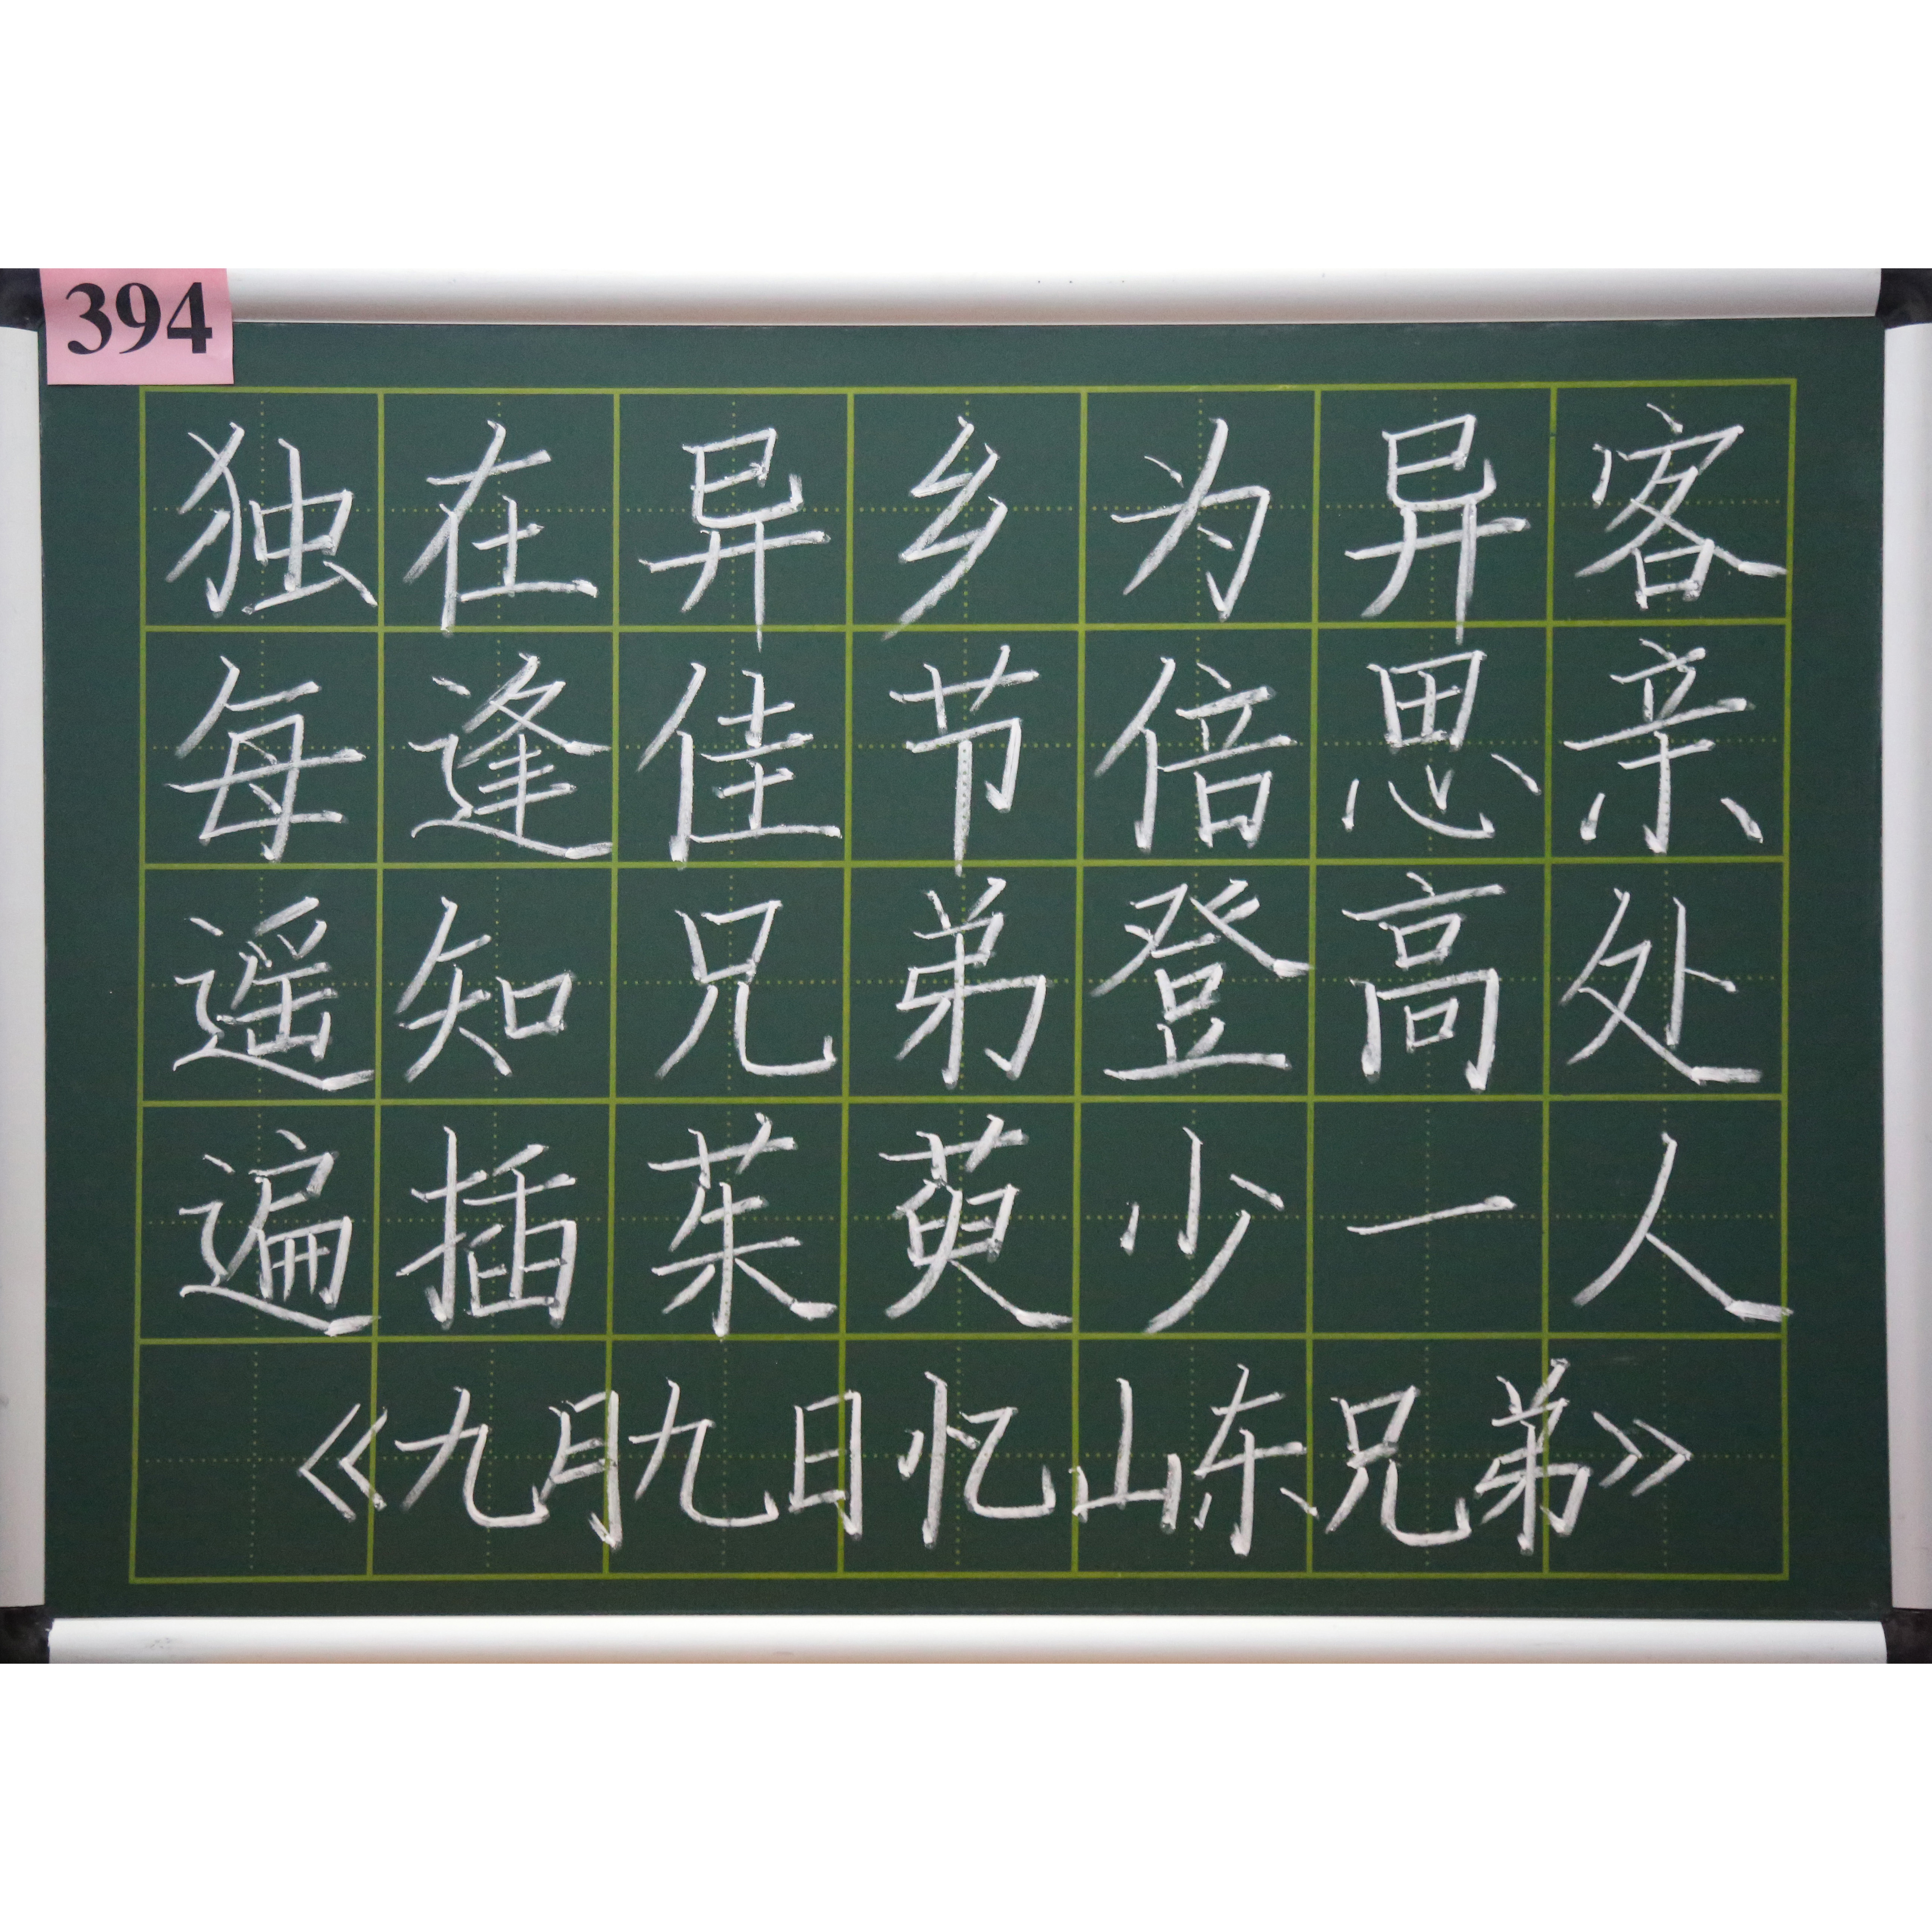 394
独在异乡为异客
每逢佳节倍思亲
遥知兄弟登高处
遍插茱萸少一人
《九月九日忆山东兄弟》